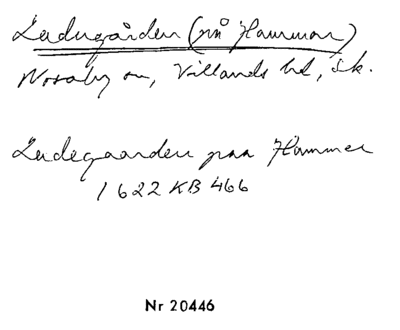 Ladugården (på Hammar)
Nosaby sn, Villands hd, Sk.
Ladegaarden paa Hammer
1622 KB 466
Nr 20446